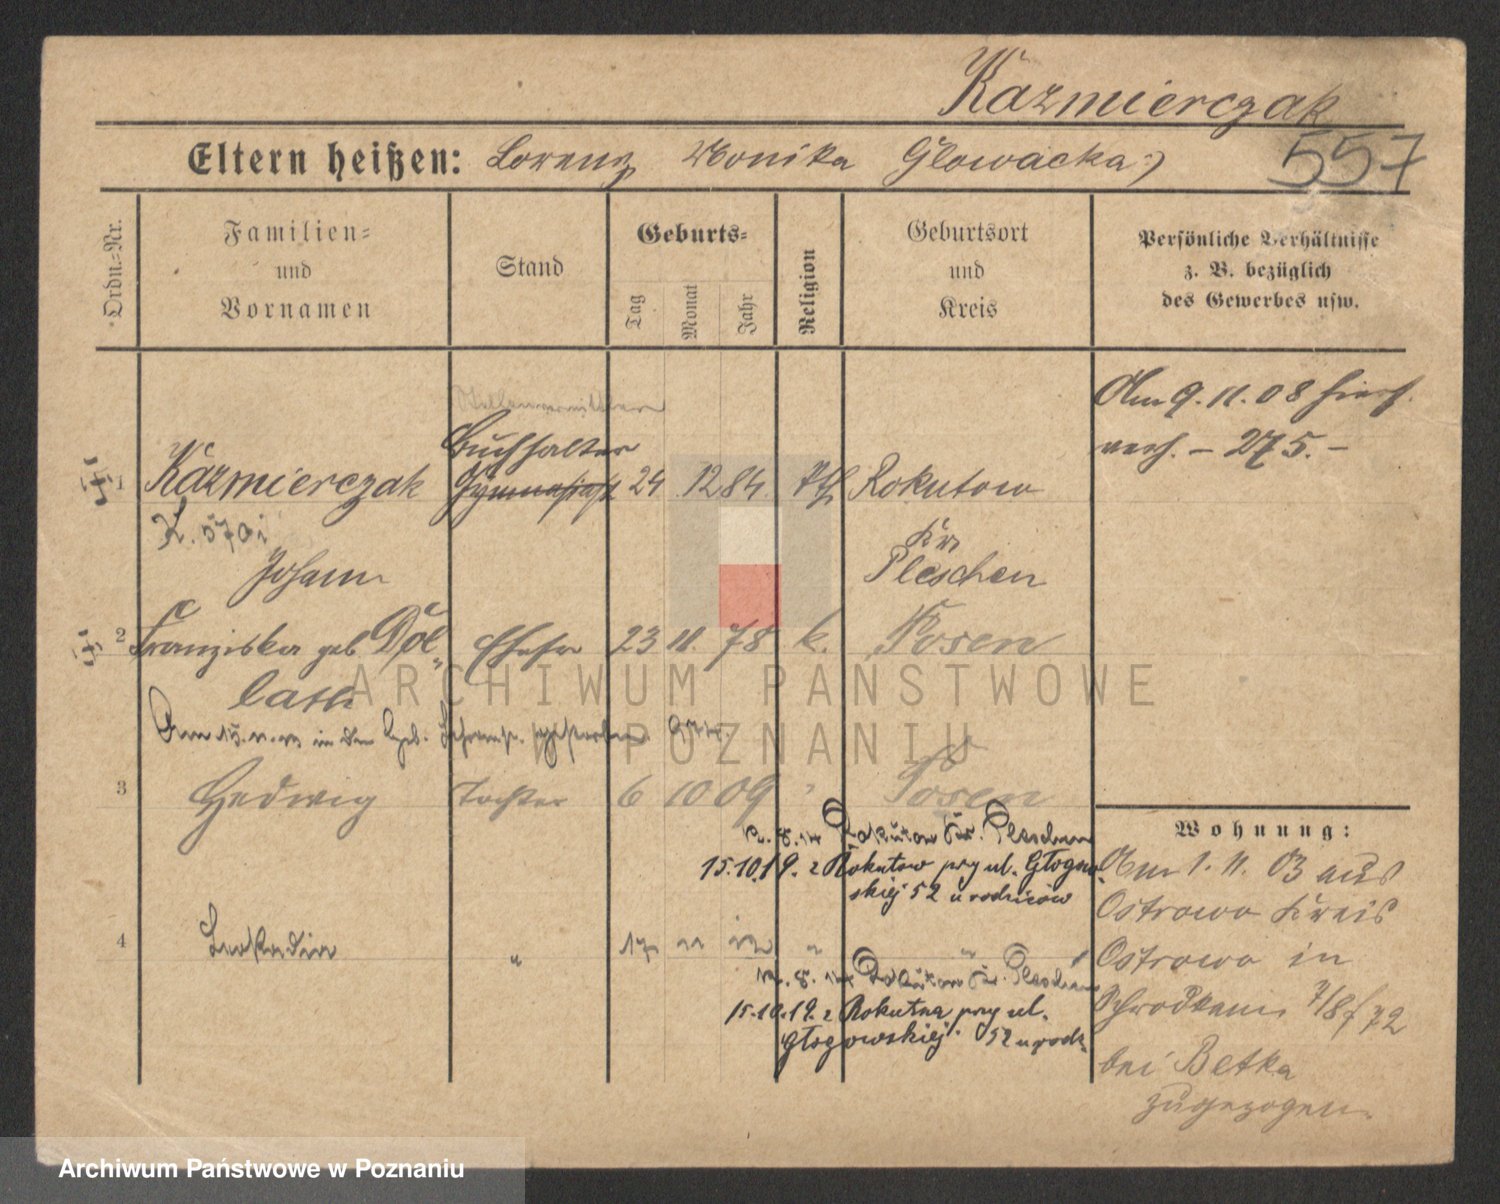 Kazmierczak
557
Eltern heißen: Lorenz Monika Głowacka
Ordn.-Nr.
Familien-
und
Vornamen
Stand
Geburts-
Tag
Monat
Jahr
Religion
Geburtsort
und
Kreis
Persönliche Verhältnisse
z. B. bezüglich
des Gewerbes usw.
Am 9. 11. 08 hier
verh. – 275. –
Buchhalter
1 Kaźmierczak Gymnasiast 24 12 84 kth Rokutow
K. 570
Johann
Kr.
Pleschen
2 Franziska geb. Dol- Ehefr 23 11. 78 k. Posen
lata
Am in der gestorben
3 Hedwig Tochter 6 10 09 Posen
8. 14 Rokutow Kr. Pleschen
15.10.19. z Rokutow przy ul. Głogow-
skiej 52 u rodziców
4 Leokadia " 17 11 12 " "
8. 14 Rokutow Kr. Pleschen
15.10.19. z Rokutna przy ul.
Głogowskiej 52 u rodz.
Wohnung:
Am 1. 11. 03 aus
Ostrowo Kreis
Ostrowo in
7/8 f 72
bei Betka
zugezogen
ARCHIWUM PAŃSTWOWE
W POZNANIU
Archiwum Państwowe w Poznaniu